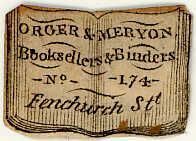 ORGER & MERYON
Booksellers & Binders
-No- -174-
Fenchurch Stt